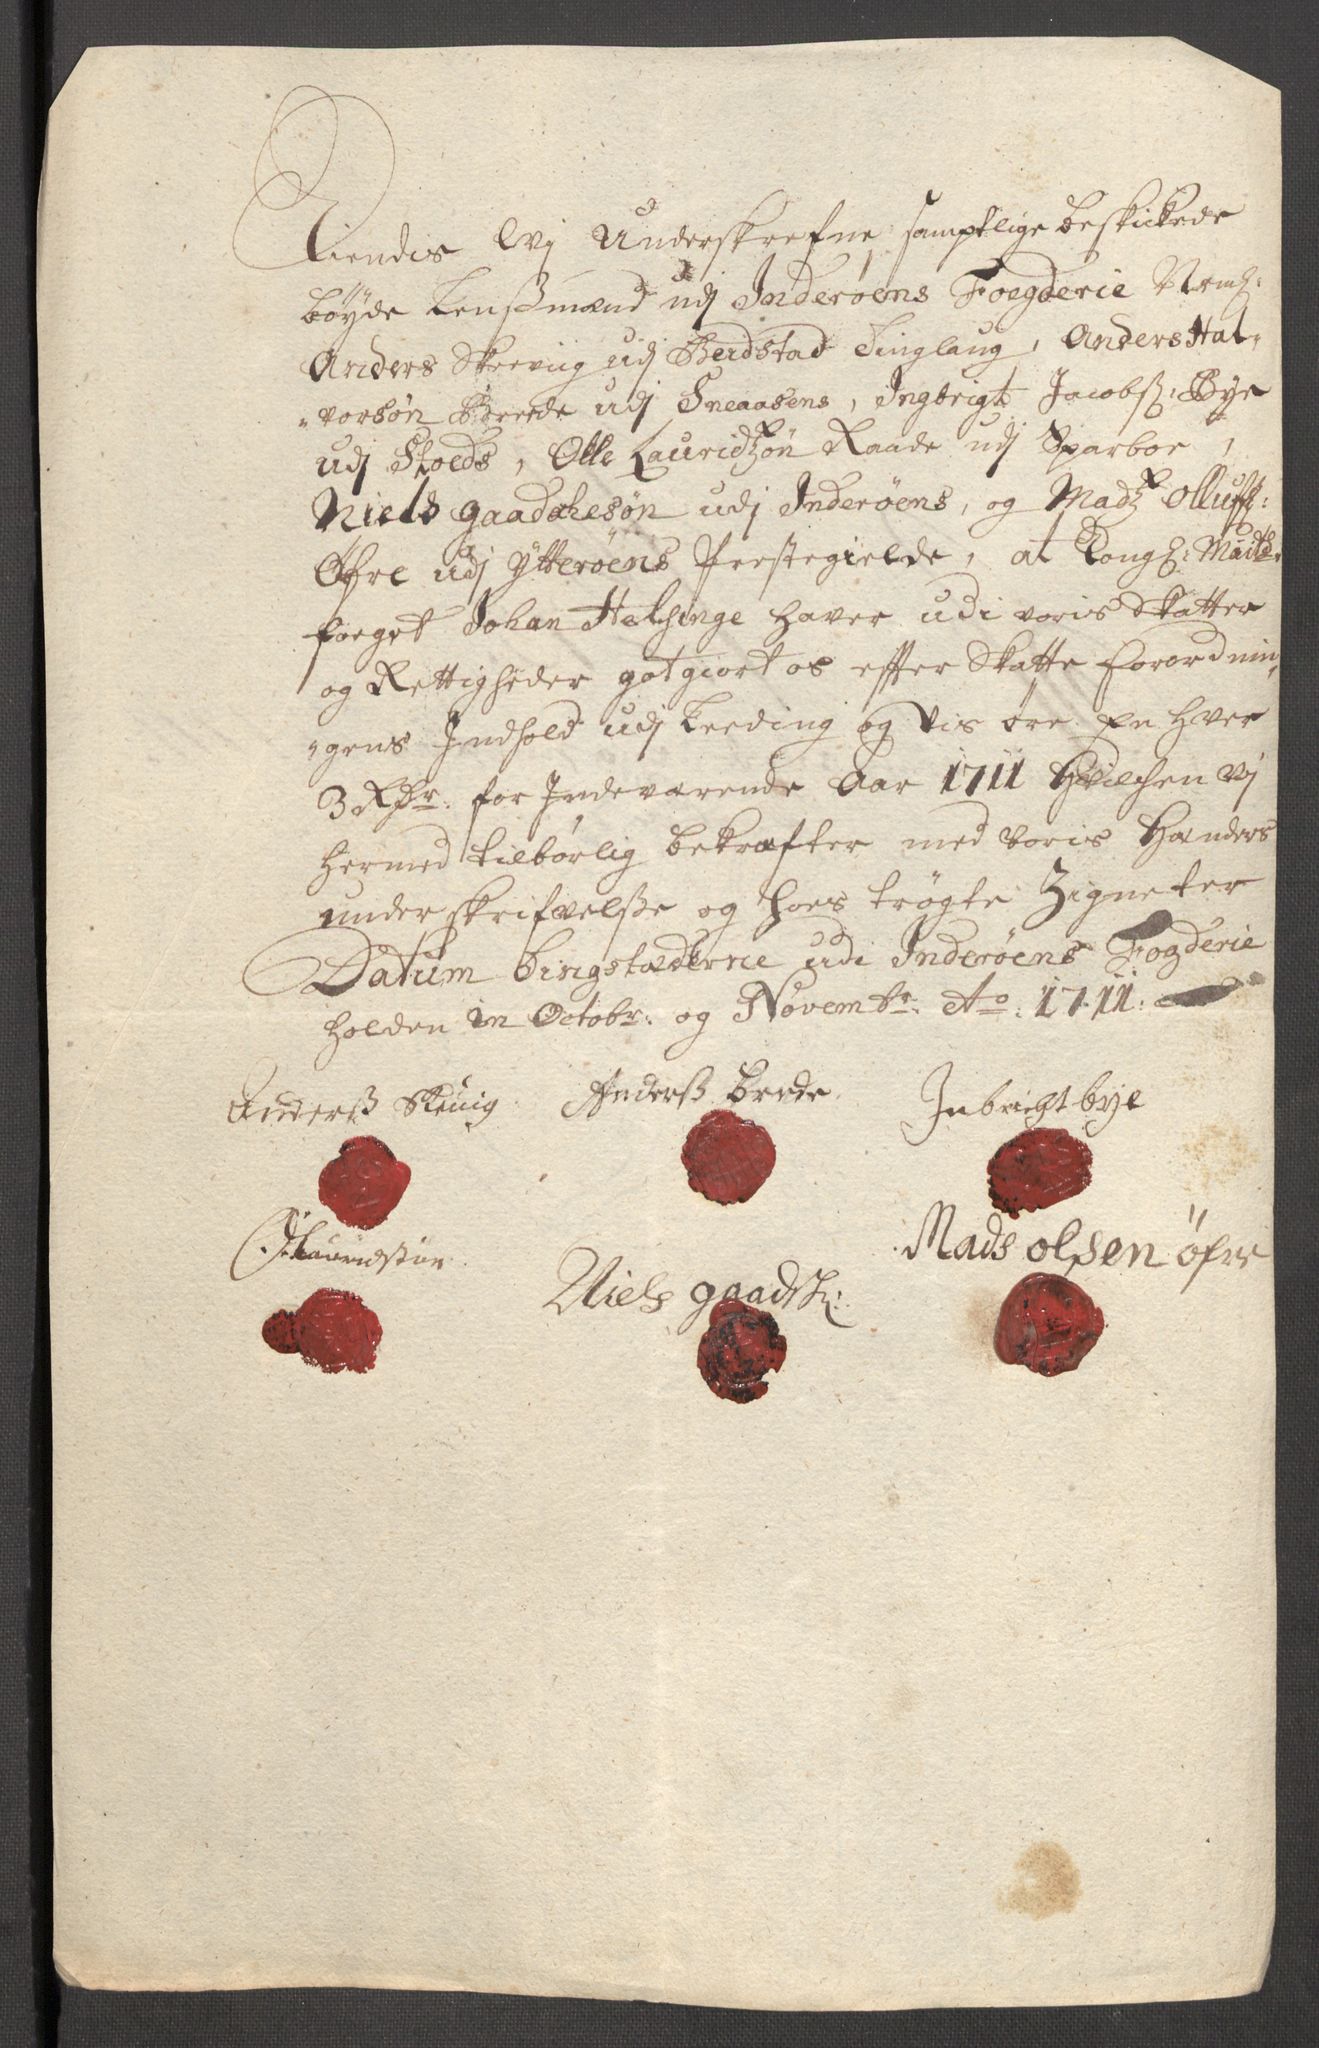 Kiendis Wj Underskrefne samptlige beskickede
böyde Lensßmænd udj Inderöens Foegderie Neml:
Anders Skeviig udj Beidstad Tinglaug, Anders Hal-
vorsön Brede udj Sneaasens, Ingbrigt Jacobß: Bye
udj Stoeds, Olle Lauridtzön Raade udj Sparboe,
Niels gaadskesön udj Inderöens, og Madtz Olluffß:
Öfre udj Ytteröens Prestegielde, at Kongl: Maÿts
foeget Johan Helsinge haver udi voris Skatter
og Rettigheder gotgiort os effter Skatte forordnin-
gens Indhold udj Leeding og Vis öre En hver
3 Rdr: for Indeværende Aar 1711 Hvilchen Vj
hermed tilbörlig bekræfter med voris Hænders
underskrifvelsse og hoes trögte Zigneter
Datum tingstæderne udi Inderöens Fogderie
holden in Octobr: og Novembr: Ao: 1711:
Anderß Skeuig Anderß brede Inbricht bye
O: Lauridssön Niels gaadsk: Mads olsen öfre